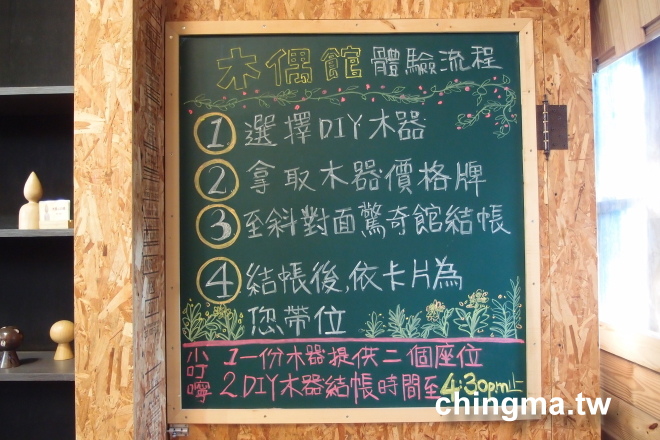 木偶館 體驗流程
① 選擇DIY木器
② 拿取木器價格牌
③ 至斜對面驚奇館結帳
④ 結帳後,依卡片為
您帶位
小叮嚀
1 一份木器提供二個座位
2 DIY木器結帳時間至4:30pm止
chingma.tw